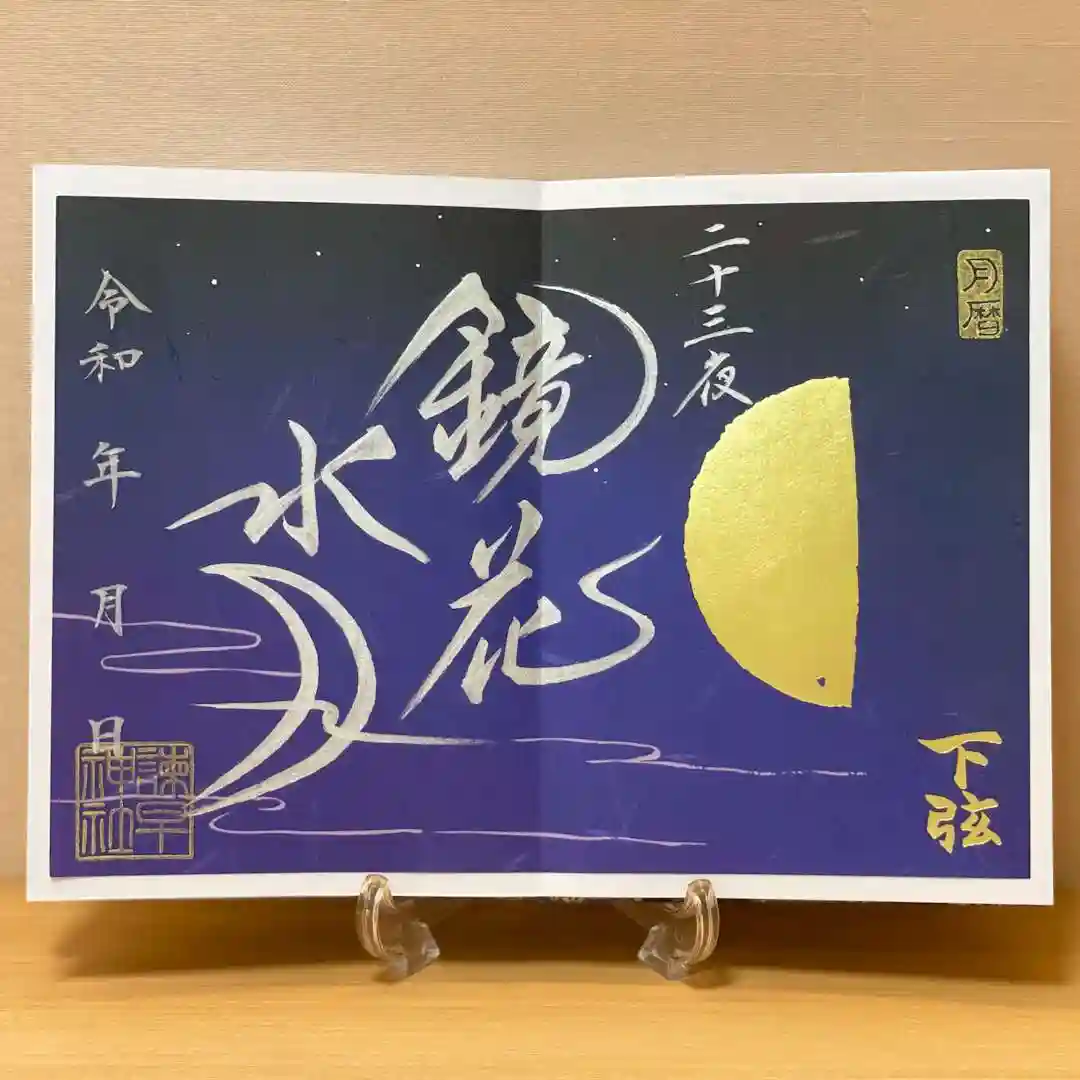 月暦
下弦
二十三夜
鏡花
水月
令和 年 月 日
諫早
神社